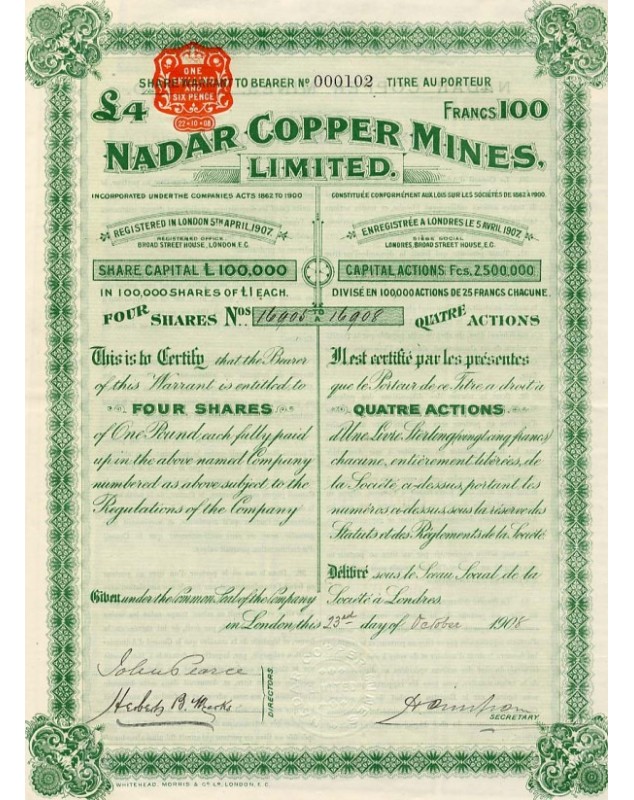 SHARE WARRANT TO BEARER Nº 000102 TITRE AU PORTEUR
ONE
AND
SIX PENCE
22·10·08
£4
FRANCS 100
NADAR COPPER MINES,
LIMITED.
INCORPORATED UNDER THE COMPANIES ACTS 1862 TO 1900
REGISTERED IN LONDON 5TH APRIL, 1907.
REGISTERED OFFICE
BROAD STREET HOUSE, LONDON, E.C.
SHARE CAPITAL £100,000
IN 100,000 SHARES OF £1 EACH.
CONSTITUÉE CONFORMÉMENT AUX LOIS SUR LES SOCIÉTÉS DE 1862 À 1900.
ENREGISTRÉE A LONDRES LE 5 AVRIL 1907.
SIÈGE SOCIAL
LONDRES, BROAD STREET HOUSE, E.C.
CAPITAL ACTIONS Fcs, 2,500,000
DIVISÉ EN 100,000 ACTIONS DE 25 FRANCS CHACUNE.
FOUR SHARES Nos 16905 TO A 16908 QUATRE ACTIONS
This is to Certify that the Bearer
of this Warrant is entitled to
FOUR SHARES
of One Pound each fully paid
up in the above named Company
numbered as above subject to the
Regulations of the Company
Il est certifié par les présentes
que le Porteur de ce Titre a droit à
QUATRE ACTIONS
d'Une Livre Sterling (vingt cinq francs)
chacune, entièrement libérées, de
la Société ci-dessus, portant les
numéros ci-dessus, sous la réserve des
Statuts et des Règlements de la Société.
Délibré sous le Sceau Social de la
Société à Londres.
Given under the Common Seal of the Company
in London this 23rd day of October 1908
John Pearce
Herbert B. Marks
DIRECTORS.
SECRETARY
WHITEHEAD, MORRIS & Co. LD. LONDON, E.C.